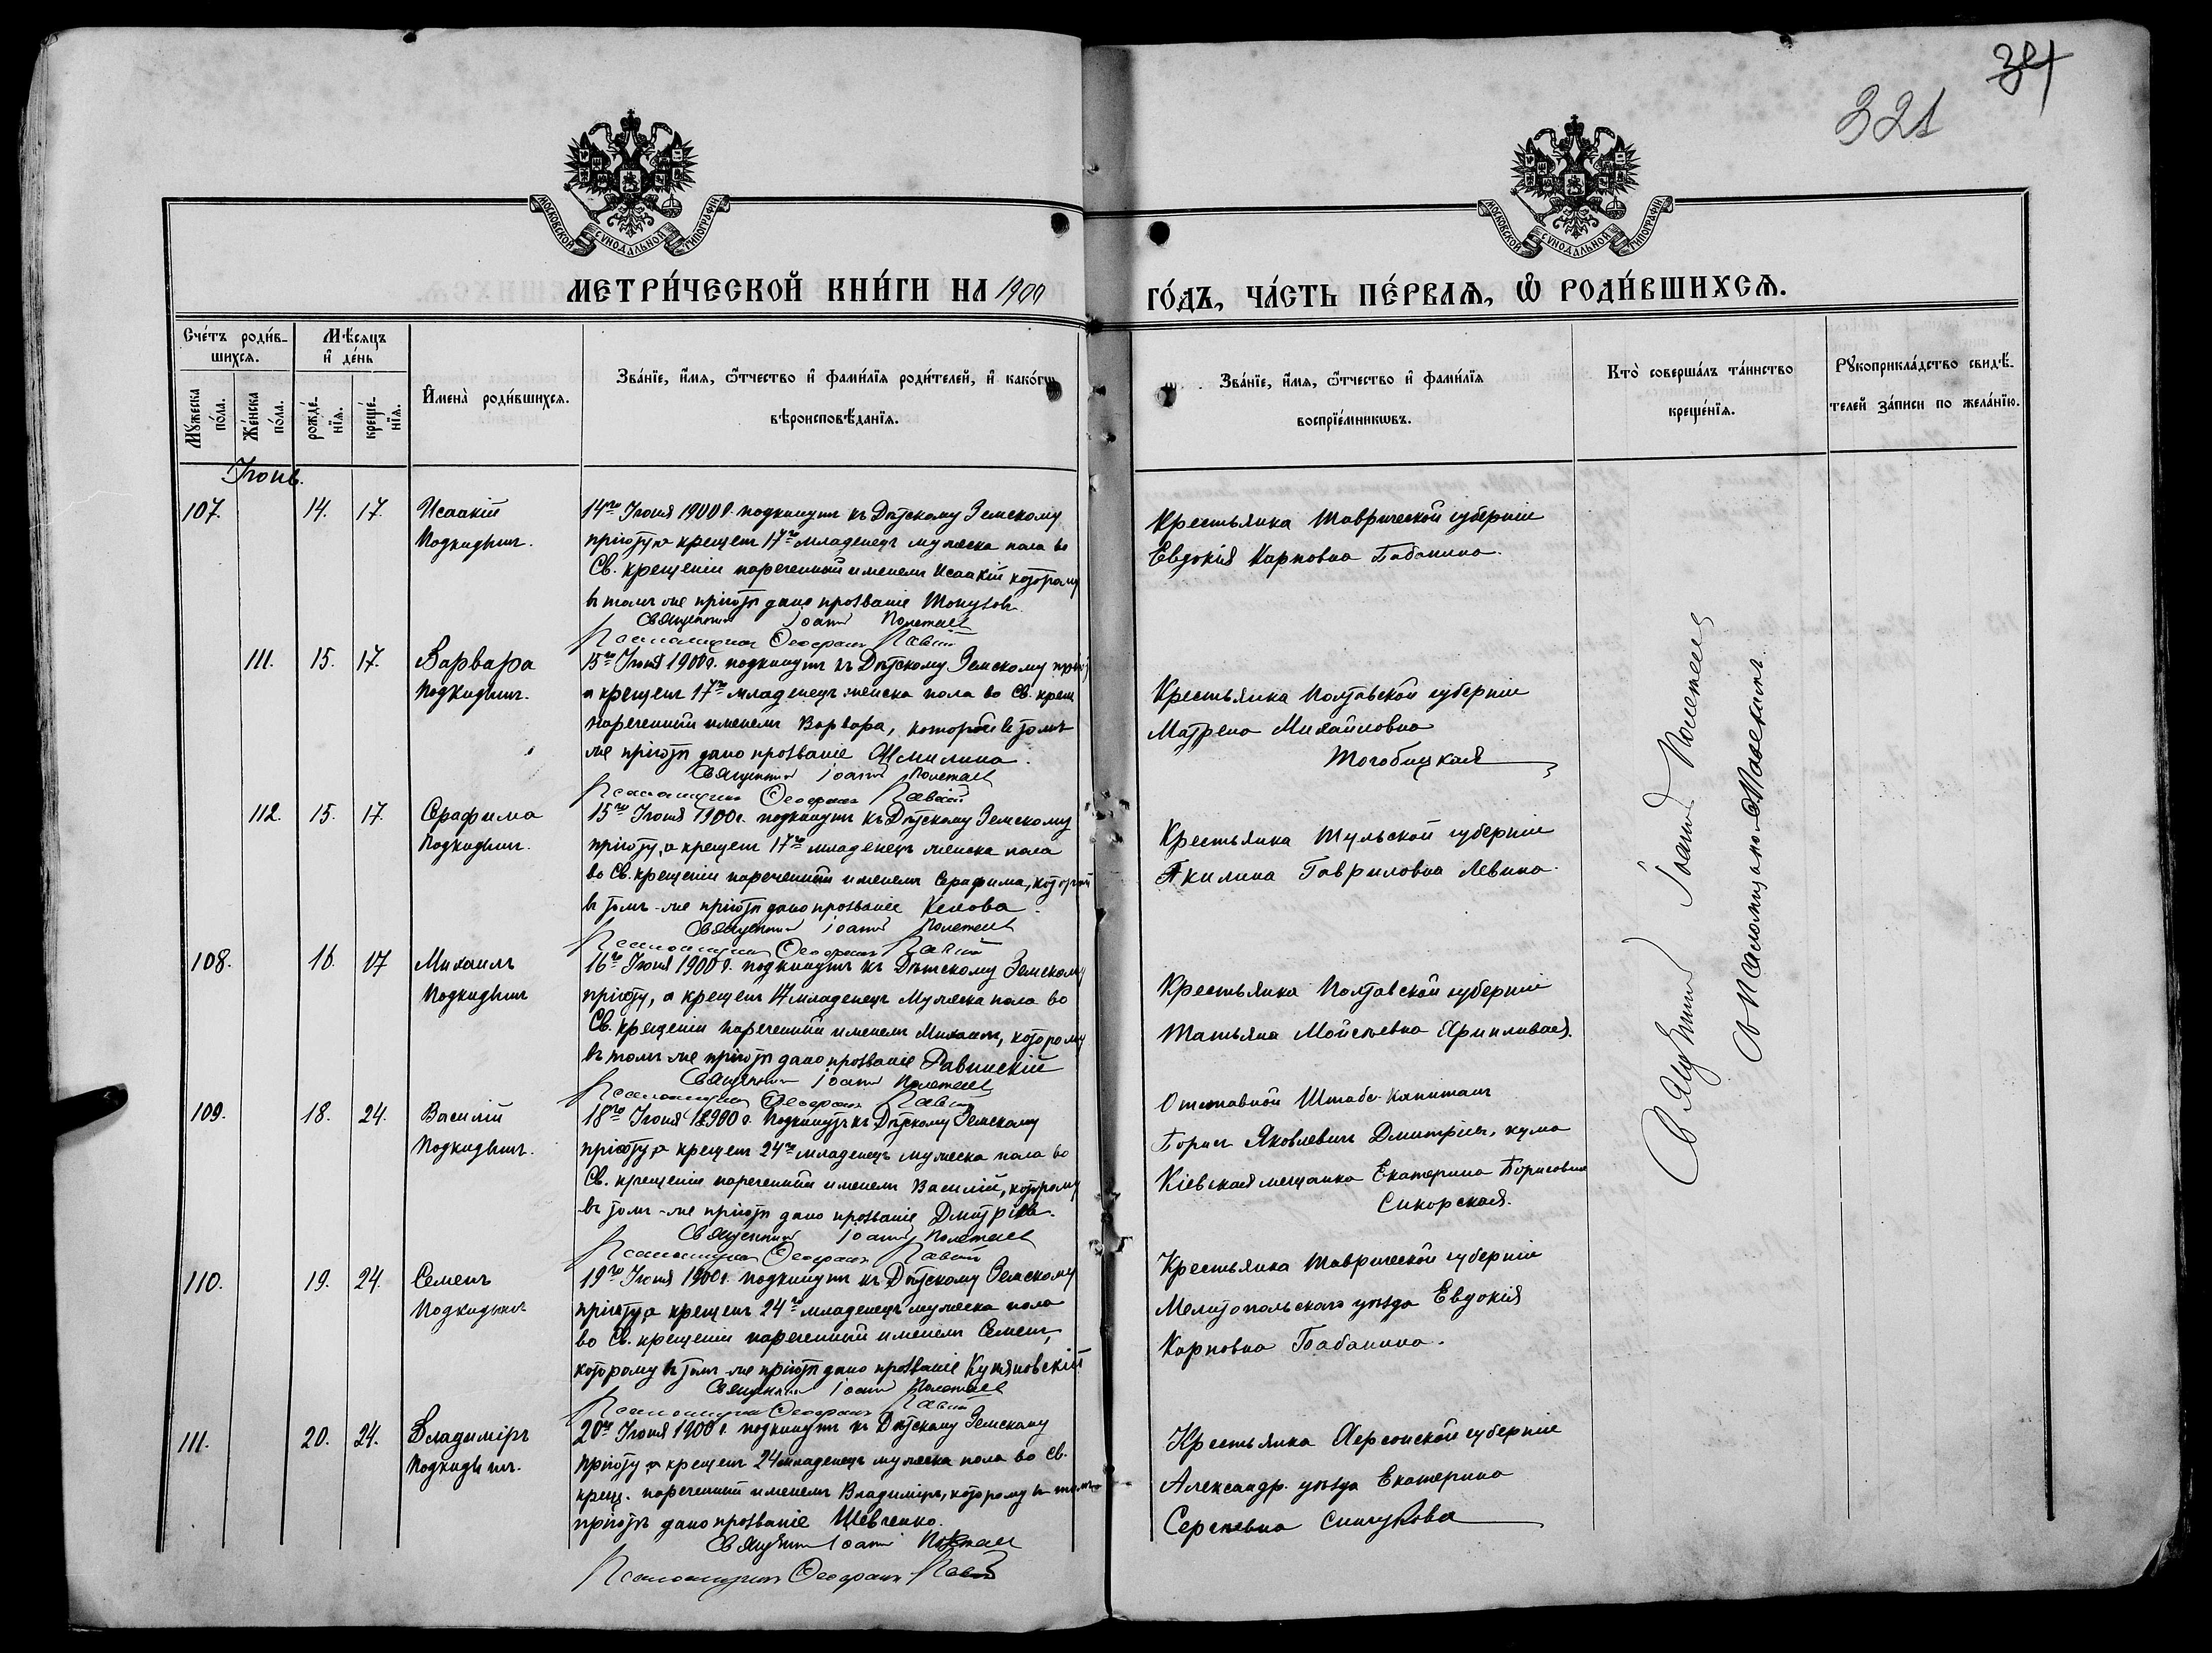 321
МОСКОВСКОЙ СѴНОДАЛЬНОЙ ТИПОГРАФІИ
МОСКОВСКОЙ СѴНОДАЛЬНОЙ ТИПОГРАФІИ
МЕТРИ́ЧЕСКОЙ КНИ́ГИ НА 1900
ГО́ДЪ, ЧА́СТЬ ПЕ́РВАѦ, Ѽ РОДИ́ВШИХСѦ.
Сче́тъ роди́в-
шихсѧ.
Мѣ́сяцъ
и҆ де́нь
Мꙋ́жеска
по́ла.
Же́нска
по́ла.
рожде́-
нїѧ.
креще́-
нїѧ.
И҆мена̀ роди́вшихсѧ.
Зва́нїе, и҆́мѧ, ѻ҆́тчество и҆ фами́лїѧ роди́телей, и҆ како́гѡ
вѣроисповѣ́данїѧ.
Зва́нїе, и҆́мѧ, ѻ҆́тчество и҆ фами́лїѧ
воспрїе́мникѡвъ.
Кто̀ соверша́лъ та́инство
креще́нїѧ.
Рꙋкоприкла́дство свидѣ́-
телей за́писи по жела́нїю.
Іюнь.
107. 14. 17. Исаакій
Подкидышъ.
14го Іюня 1900 г. подкинутъ къ Дѣтскому Земскому
пріюту, а крещенъ 17го младенецъ мужеска пола во
Св. крещеніи нареченный именемъ Исаакій которому
въ томъ-же пріютѣ дано прозваніе
Священникъ Іоаннъ Полетаев
Псаломщикъ Ѳеофанъ
Крестьянка Таврической губерніи
Евдокія Карповна Бабанина.
111. 15. 17. Варвара
Подкидышъ.
15го Іюня 1900 г. подкинутъ къ Дѣтскому Земскому
а крещенъ 17го младенецъ женска пола во Св. крещ
нареченный именемъ Варвара, которой въ томъ
же пріютѣ дано прозваніе
Священникъ Іоаннъ Полетаев
Псаломщикъ Ѳеофанъ
Крестьянка Полтавской губерніи
Матрена Михайловна
Тогобицкая
112. 15. 17 Серафима
Подкидышъ.
15го Іюня 1900 г. подкинутъ къ Дѣтскому Земскому
пріюту, а крещенъ 17го младенецъ женска пола
во Св. крещеніи нареченный именемъ Серафима, которой
въ томъ-же пріютѣ дано прозваніе
Священникъ Іоаннъ Полетаев
Псаломщикъ Ѳеофанъ
Крестьянка Тульской губерніи
Акилина Гавриловна Левина.
108. 16. 17 Михаилъ
Подкидышъ
16го Іюня 1900 г. подкинутъ къ Дѣтскому Земскому
пріюту, а крещенъ 17 младенецъ мужеска пола во
Св. крещеніи нареченный именемъ Михаилъ, которому
въ томъ-же пріютѣ дано прозваніе Равинскій
Священникъ Іоаннъ Полетаев
Псаломщикъ Ѳеофанъ
Крестьянка Полтавской губерніи
Татьяна Мойсѣевна
109. 18. 24. Василій
Подкидышъ.
18го Іюня 1900 г. подкинутъ къ Дѣтскому Земскому
пріюту, а крещенъ 24го младенецъ мужеска пола во
Св. крещеніи нареченный именемъ Василій, которому
въ томъ-же пріютѣ дано прозваніе Дмитріев.
Священникъ Іоаннъ Полетаев
Псаломщикъ Ѳеофанъ
Отставной Штабс-капитанъ
Борисъ Яковлевичъ Дмитріевъ, кума
Кіевская мещанка Екатерина Борисовна
Сикорская.
110. 19. 24. Семенъ
Подкидышъ
19го Іюня 1900 г. подкинутъ къ Дѣтскому Земскому
пріюту, а крещенъ 24го младенецъ мужеска пола
во Св. крещеніи нареченный именемъ Семенъ,
которому въ томъ-же пріютѣ дано прозваніе
Священникъ Іоаннъ Полетаев
Псаломщикъ Ѳеофанъ
Крестьянка Таврической губерніи
Мелитопольскаго уѣзда Евдокія
Карповна Бабанина.
111. 20. 24. Владиміръ
Подкидышъ.
20го Іюня 1900 г. подкинутъ къ Дѣтскому Земскому
пріюту а крещенъ 24 младенецъ мужеска пола во Св.
крещ. нареченный именемъ Владиміръ, которому въ томъ
пріютѣ дано прозваніе Шевченко.
Священникъ Іоаннъ Полетаев
Псаломщикъ Ѳеофанъ
Крестьянка Херсонской губерніи
Александр. уѣзда Екатерина
Сергѣевна
Священникъ Іоаннъ Полетаев
Псаломщикъ